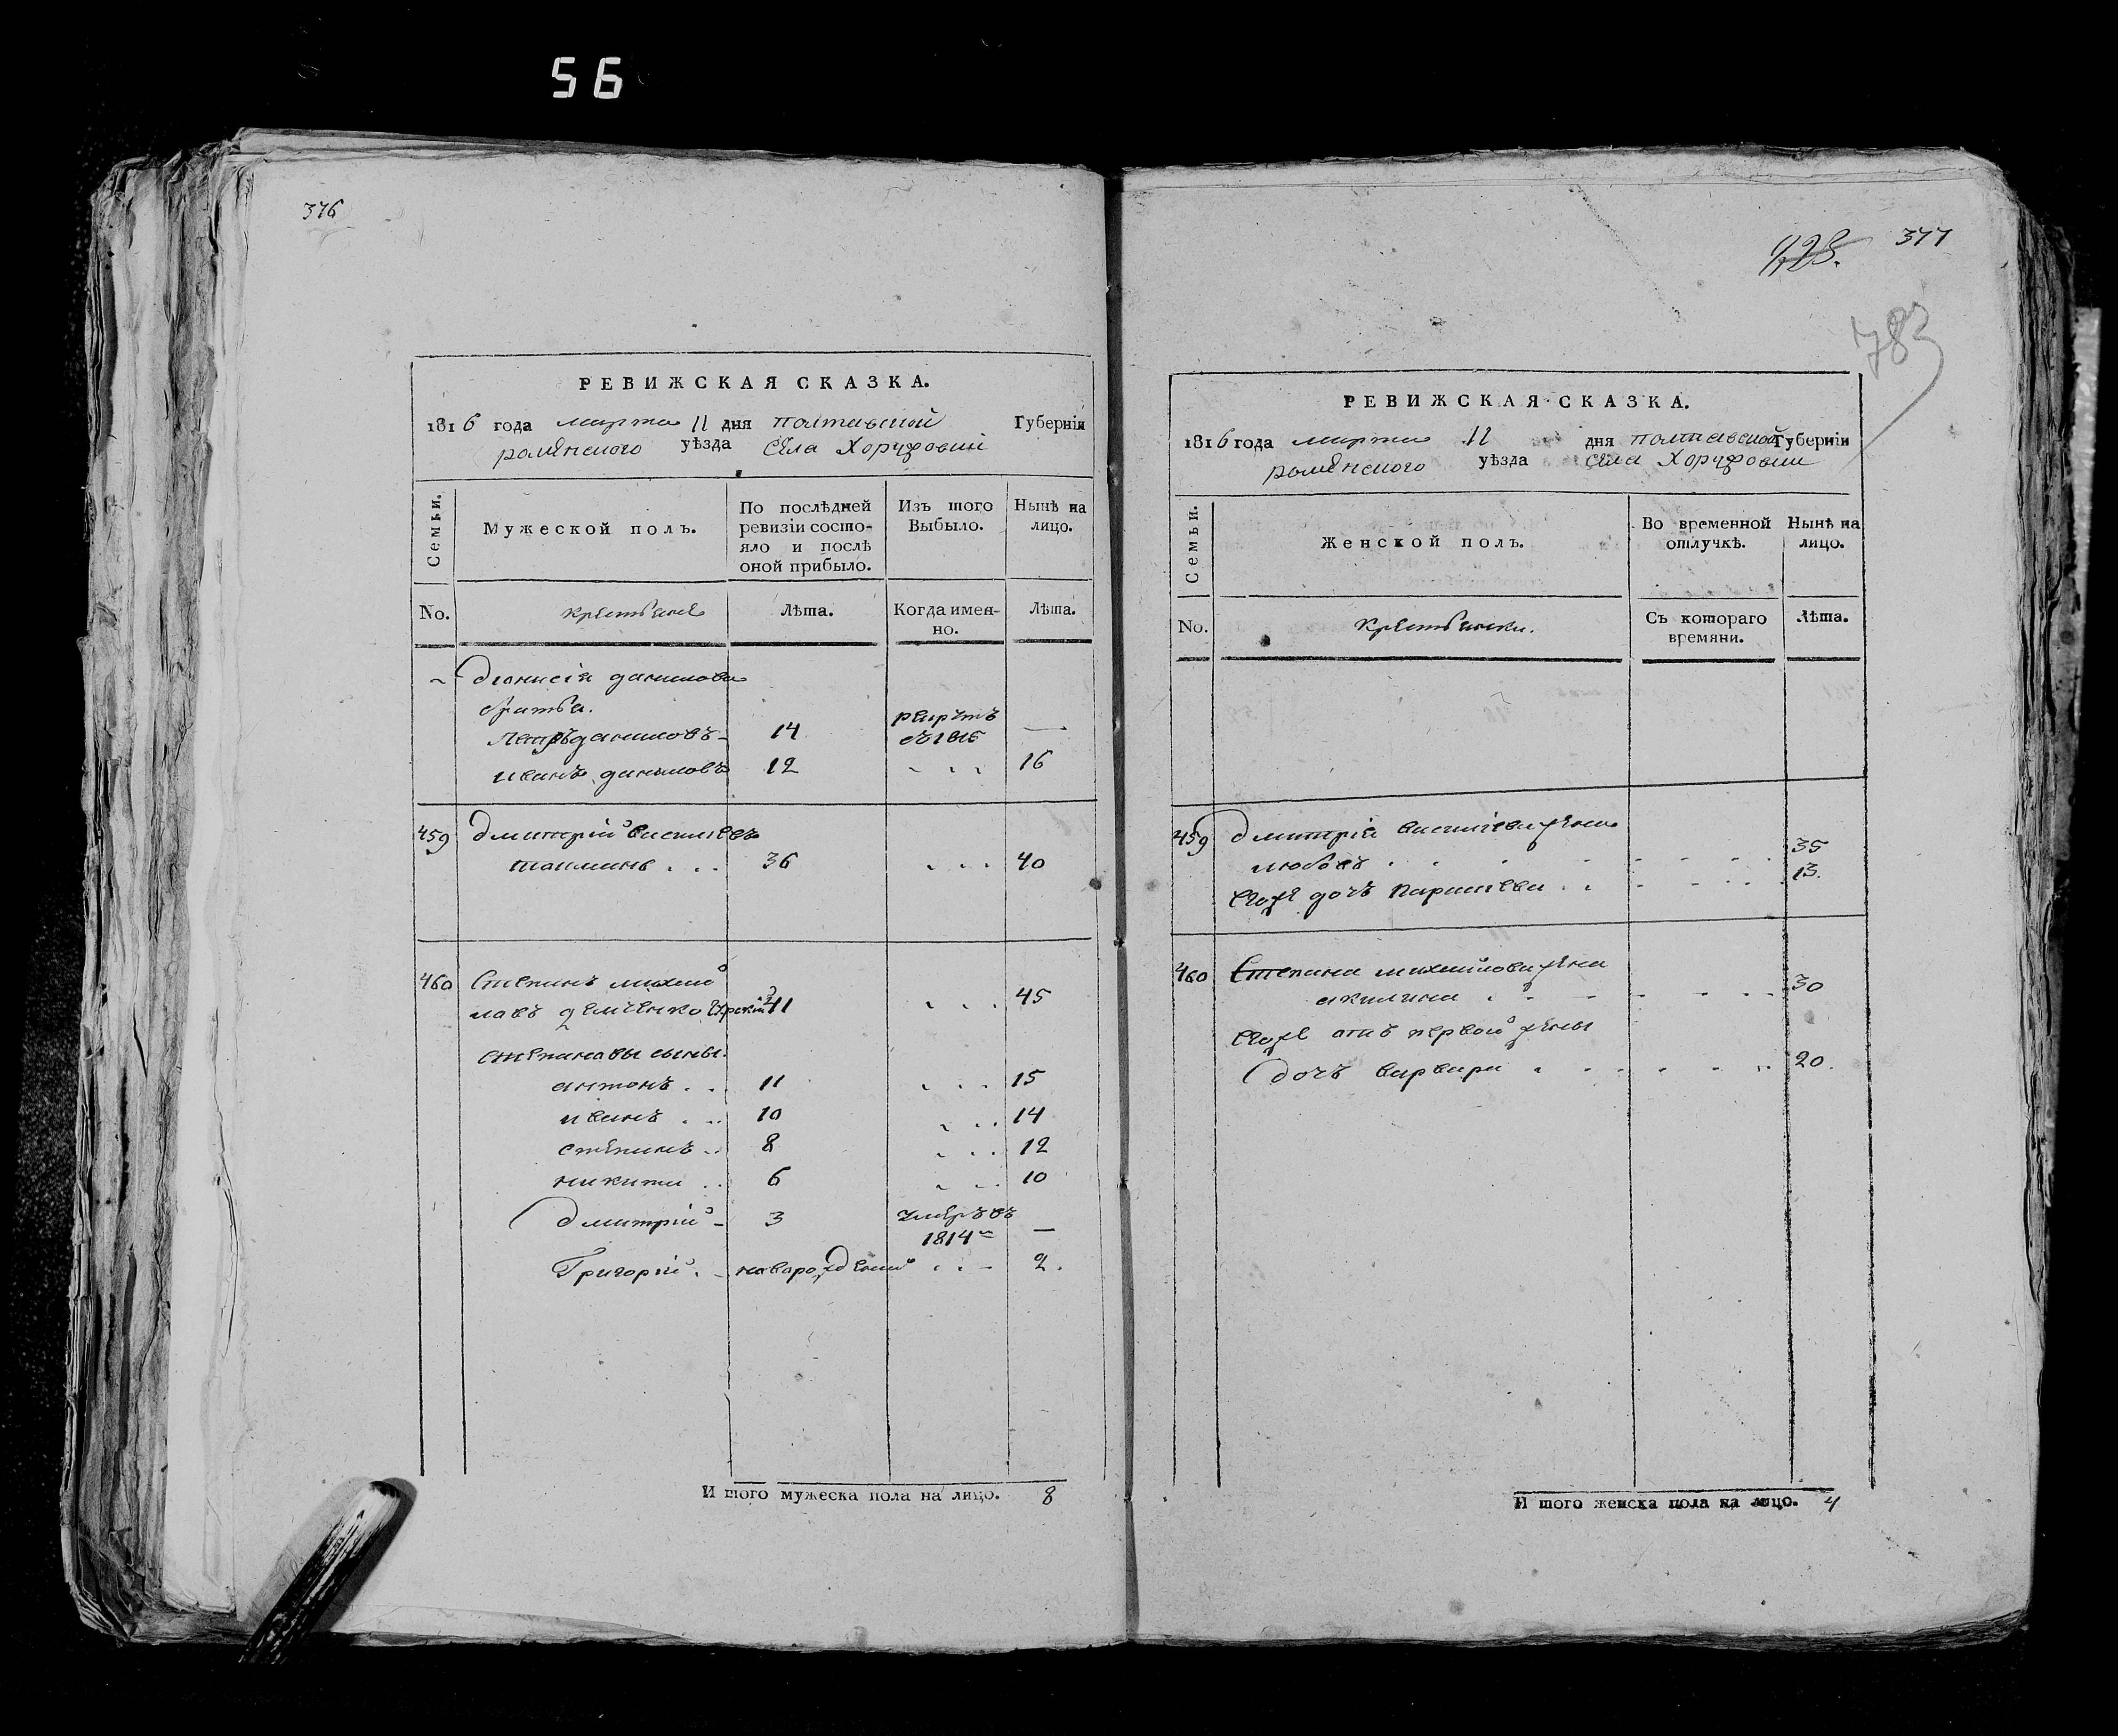 56
376
РЕВИЖСКАЯ СКАЗКА.
1816 года марта 11 дня полтавской Губерніи
роменского уѣзда Села Хоружовки
Семьи.
Мужеской полъ.
По послѣдней ревизіи состояло и послѣ оной прибыло.
Изъ того Выбыло.
Нынѣ на лицо.
No.
крестьяне
Лѣта.
Когда именно.
Лѣта.
дионисія данилова
братья.
Петръ даниловъ 14
въ 1815 —
иванъ даниловъ 12 16
459 дмитрій василіевъ
36 40
460 Степанъ михай
ловъ 41 45
степановы сыны.
антонъ 11 15
иванъ 10 14
степанъ 8 12
никита 6 10
дмитрій 3 умеръ въ
1814 —
Григорій новорожденній 2.
И того мужеска пола на лицо. 8
423. 377
783
РЕВИЖСКАЯ СКАЗКА.
1816 года марта 11 дня полтавской Губерніи
роменского уѣзда села Хоружовки
Семьи.
Женской полъ.
Во временной отлучкѣ.
Нынѣ на лицо.
No.
Крестьянки.
Съ котораго времяни.
Лѣта.
459 дмитрія василіева жена
любовъ 35
егоже дочъ параскева 13.
460 Степана михайлова жена
акилина 30
егоже отъ первой жены
дочъ варвара 20.
И того женска пола на лицо. 4